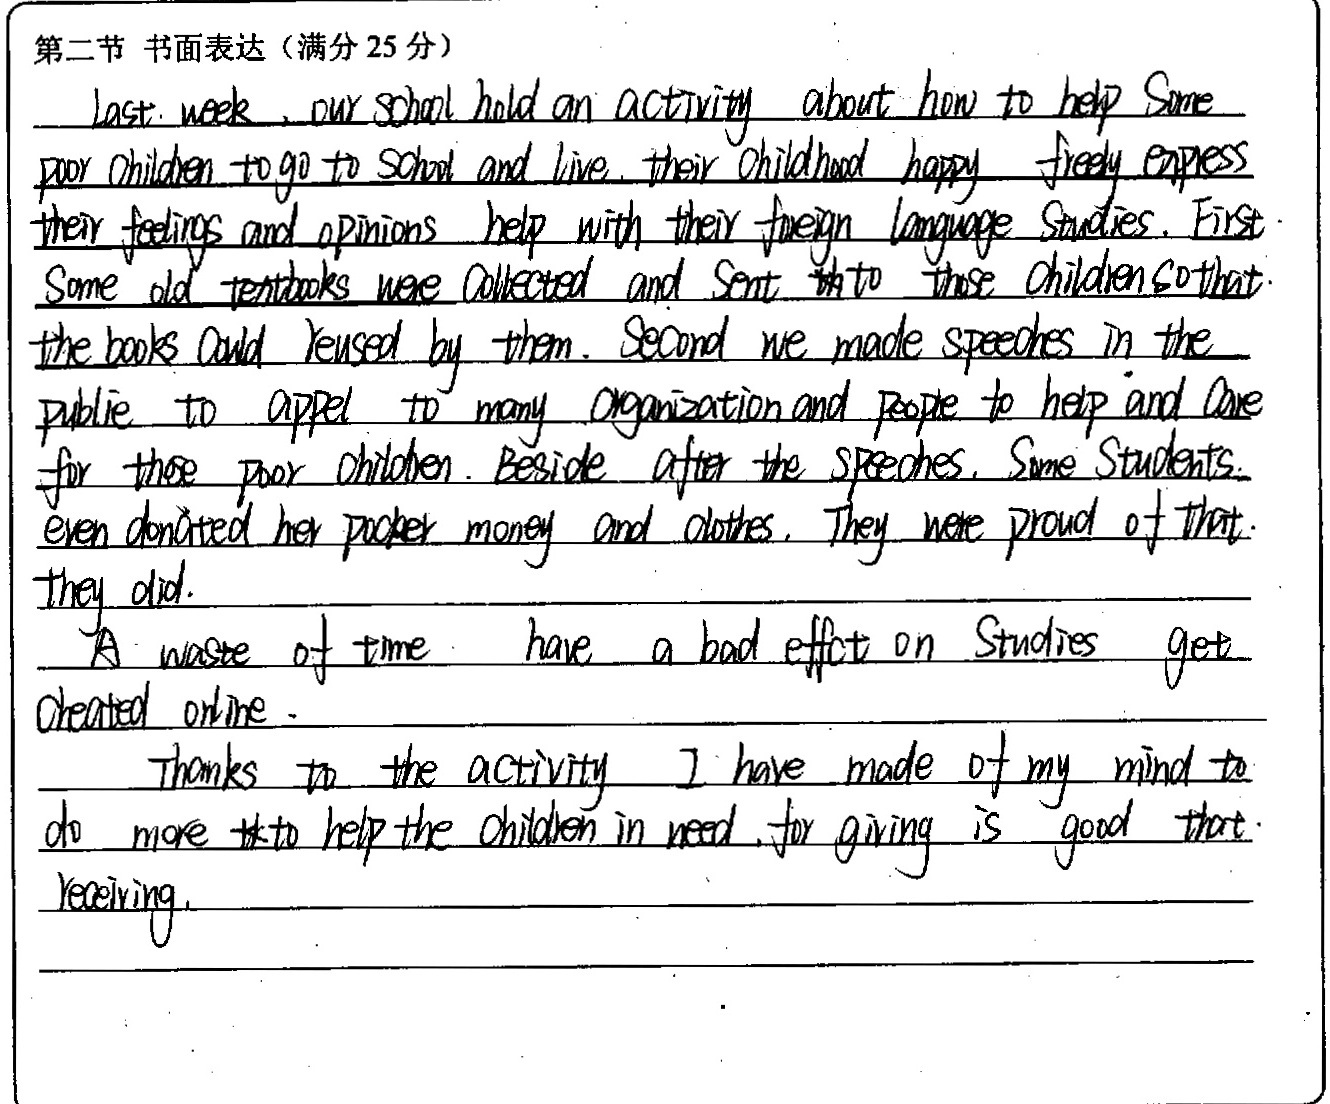 第二节 书面表达（满分 25 分）
Last week, our school hold an activity about how to help Some
poor children to go to school and live their childhood happy freely express
their feelings and opinions help with their foreign language studies. First
Some old textbooks were collected and sent to those children so that
the books could reused by them. Second we made speeches in the
publie to appel to many organization and people to help and care
for these poor children. Beside after the speeches, Some Students
even donated her pocker money and clothes. They were proud of that
they did.
A waste of time have a bad effct on studies get
cheated online.
Thanks to the activity I have made of my mind to
do more to help the children in need, for giving is good that
receiving.